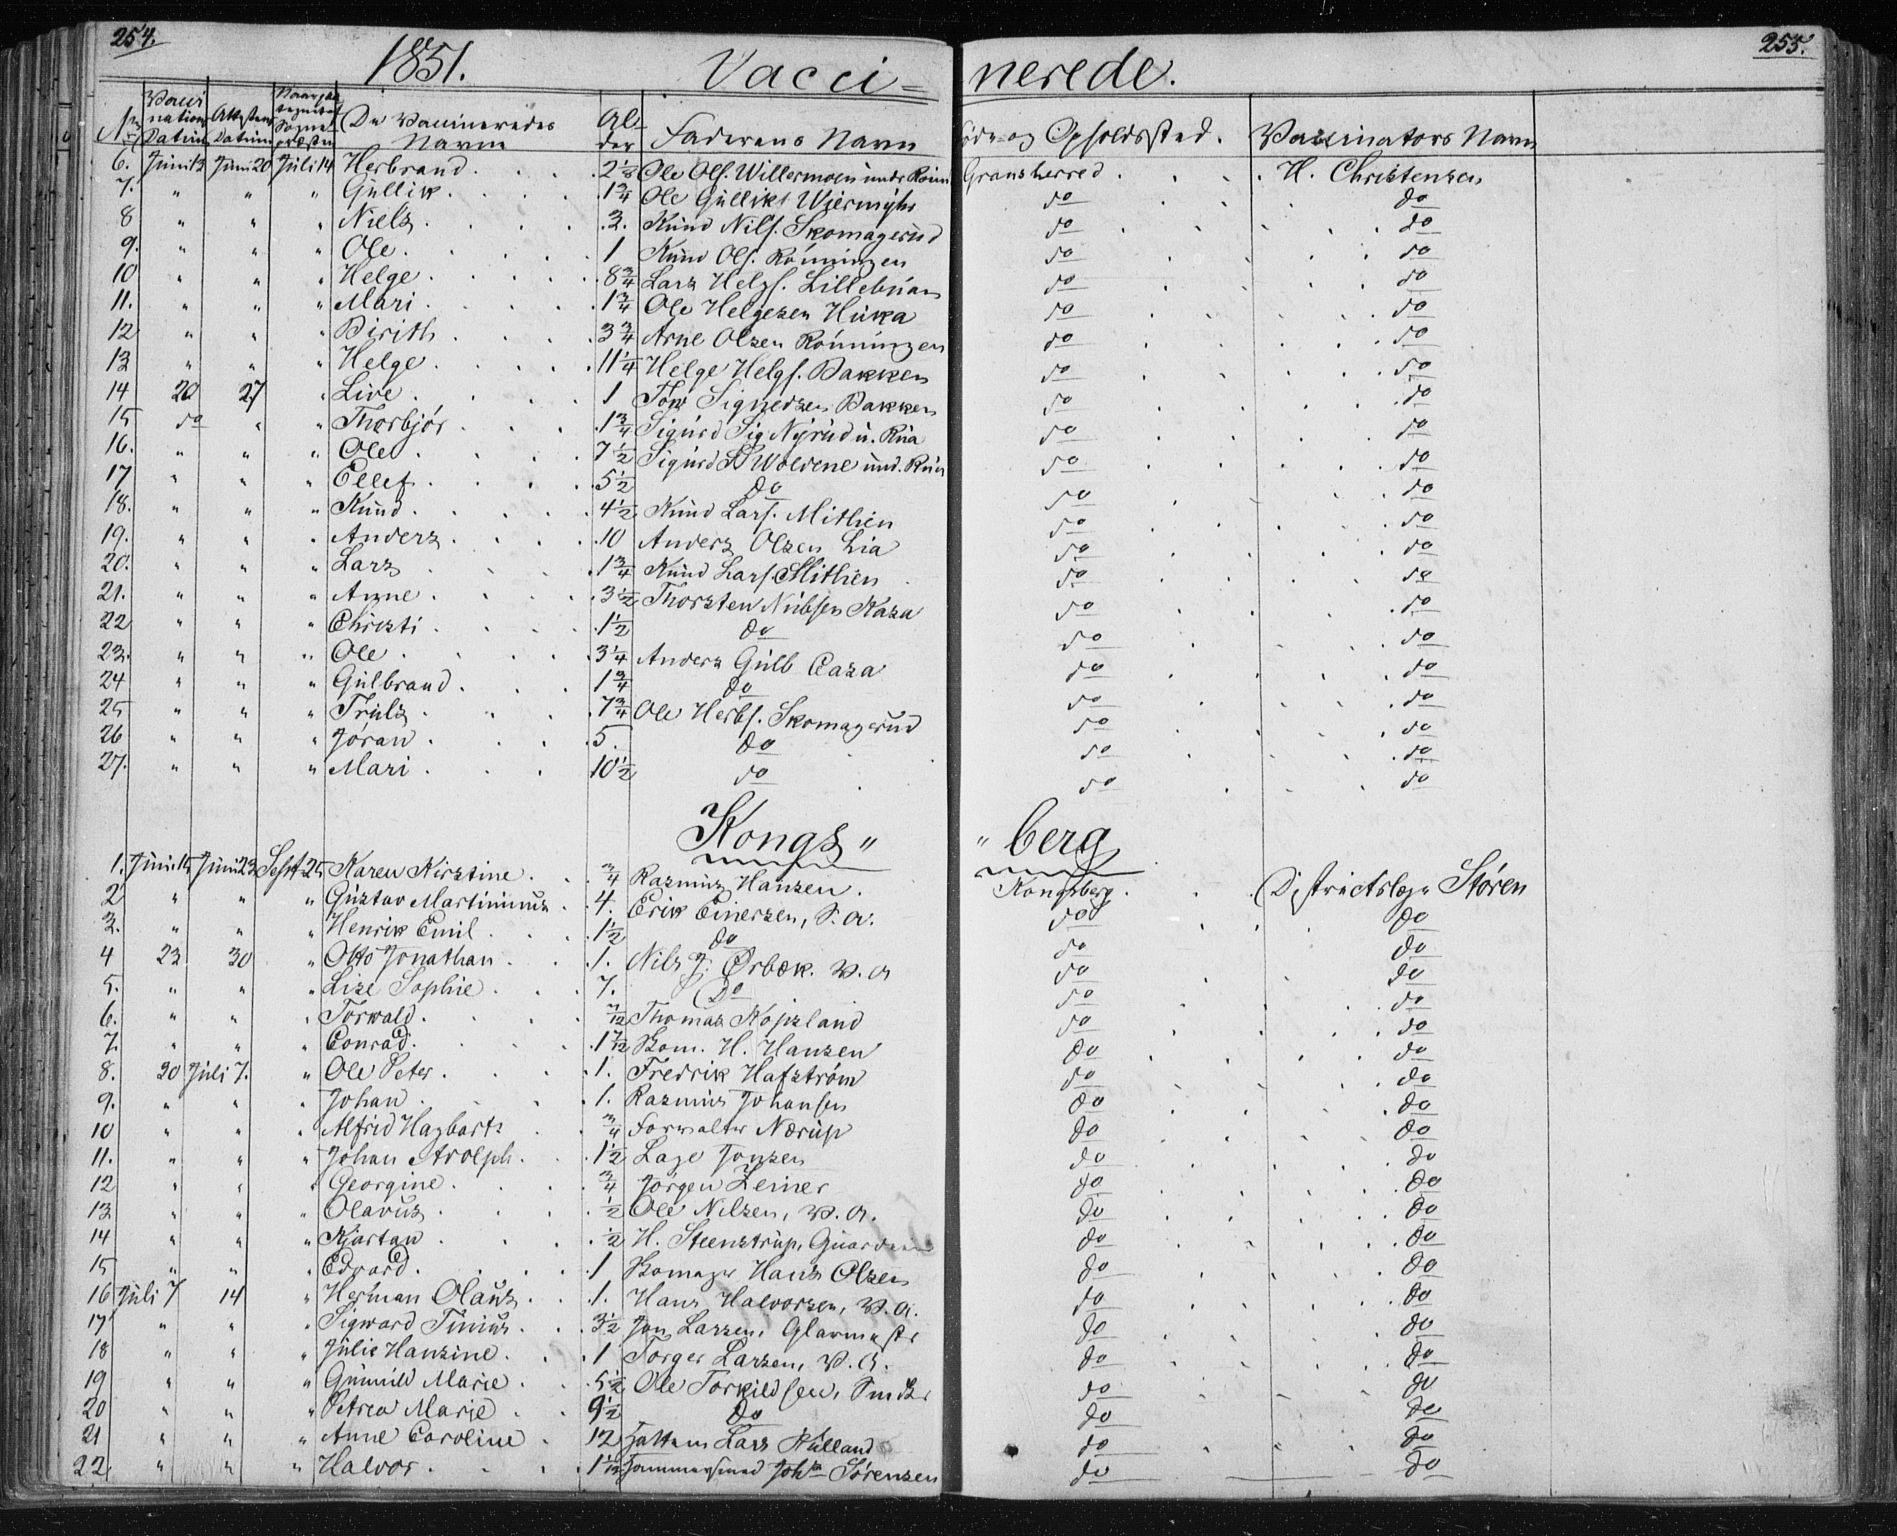 254. 255.
1851. Vacci= nerede.
No Vaccinations Datum Attestens Datum De Vaccineredes Navn Alder Faderens Navn Føde- og Opholdssted. Vaccinators Navn
6. Juni 13 Juni 20 Juli 14 Herbrand . . . 2 1/3 Ole Ols. Willermoen under Gransherred . . . H. Christensen
7. " " " Gullik . . . 1 3/4 Ole Gulliks do do
8 " " " Niels . . . 3. Knud Nils. Skomagerud do do
9. " " " Ole . . . 1 Knud Ols. Rönningen do do
10 " " " Helge . . . 8 3/4 Lars Helgs. Lillebuan do do
11. " " " Mari . . . 1 3/4 Ole Helgesen Huka do do
12 " " " Birith . . . 3 3/4 Arne Olsen Rönningen do do
13 " " " Helge . . . 11 1/4 Helge Helgs. Bakken do do
14 20 27 " Live . . . 1 Bakken do do
15 do " " Thorbjör . . . 1 3/4 Sigurd Sig Nyrud u. Rua do do
16. " " " Ole . . . 7 1/2 Sigurd S Woldene und. do do
17 " " " Ellef . . . 5 1/2 do do do
18. " " " Knud . . . 4 1/2 Knud Lars. Mithien do do
19. " " " Anders . . . 10 Anders Olsen Lia do do
20. " " " Lars . . . 1 3/4 Knud Lars. do do
21. " " " Anne . . . 3 1/2 Thorsten Kasa do do
22 " " " Christi . . . 1 1/2 do do do
23. " " " Ole . . . 3 1/4 Anders Gulb Casa do do
24 " " " Gulbrand . . . 1 3/4 do do do
25 " " " Truls . . . 7 3/4 Ole Herbs. Skomagerud do do
26 " " " Jöran . . . 5. do do do
27. " " " Mari . . . 10 1/2 do do do
Kongs " " berg
1. Juni 15 Juni 23 Sept 25 Karen Kirstine . . 3/4 Rasmus Hansen. Kongsberg . . Districtslæge Stören
2 " " " Gustav Martinius . 4. Erik Einersen, S. A. do do
3. " " " Henrik Emil . . 1 1/2 do do do
4 23 30 " Otto Jonathan . . 1. Nils J. Ørbæk. W. A do do
5. " " " Lise Sophie . . 7. Do do do
6. " " " Torwald . . 7/12 Thomas Kopsland do do
7. " " " Conrad . . 1 7/12 Skom. H. Hansen do do
8. 30 Juli 7. " Ole Peter . . 1. Fredrik Hafström do do
9. " " " Johan . . 1. Rasmus Johansen do do
10 " " " Alfrid Hagbarth . 3/4 Forvalter Nærup do do
11. " " " Johan Adolph . . 1 1/2 Lage Jonsen do do
12 " " " Georgine . . 3/4 Jörgen Zeiner do do
13 " " " Olavus . . 1/2 Ole Nilsen, W. A. do do
14 " " " Kjartan . . 1/2 H. Steenstrup, do do
15 " " " Edvard . . 1 Skomager Hans Olsen do do
16 Juli 7 14 " Herman Olaus . . 1. Hans Halvorsen, W. A. do do
17 " " " Sigward Tinius . . 3 1/2 Jon Larsen, Glarmestr do do
18 " " " Julie Hansine . . 1 Torger Larsen, W. A. do do
19 " " " Gunnild Marie . . 5 1/2 Ole Torkildsen, do do
20 " " " Petrea Marie . . 9 1/2 Do do do
21 " " " Anne Caroline . 12 Lars do do
22 " " " Halvor . . Sörensen do do